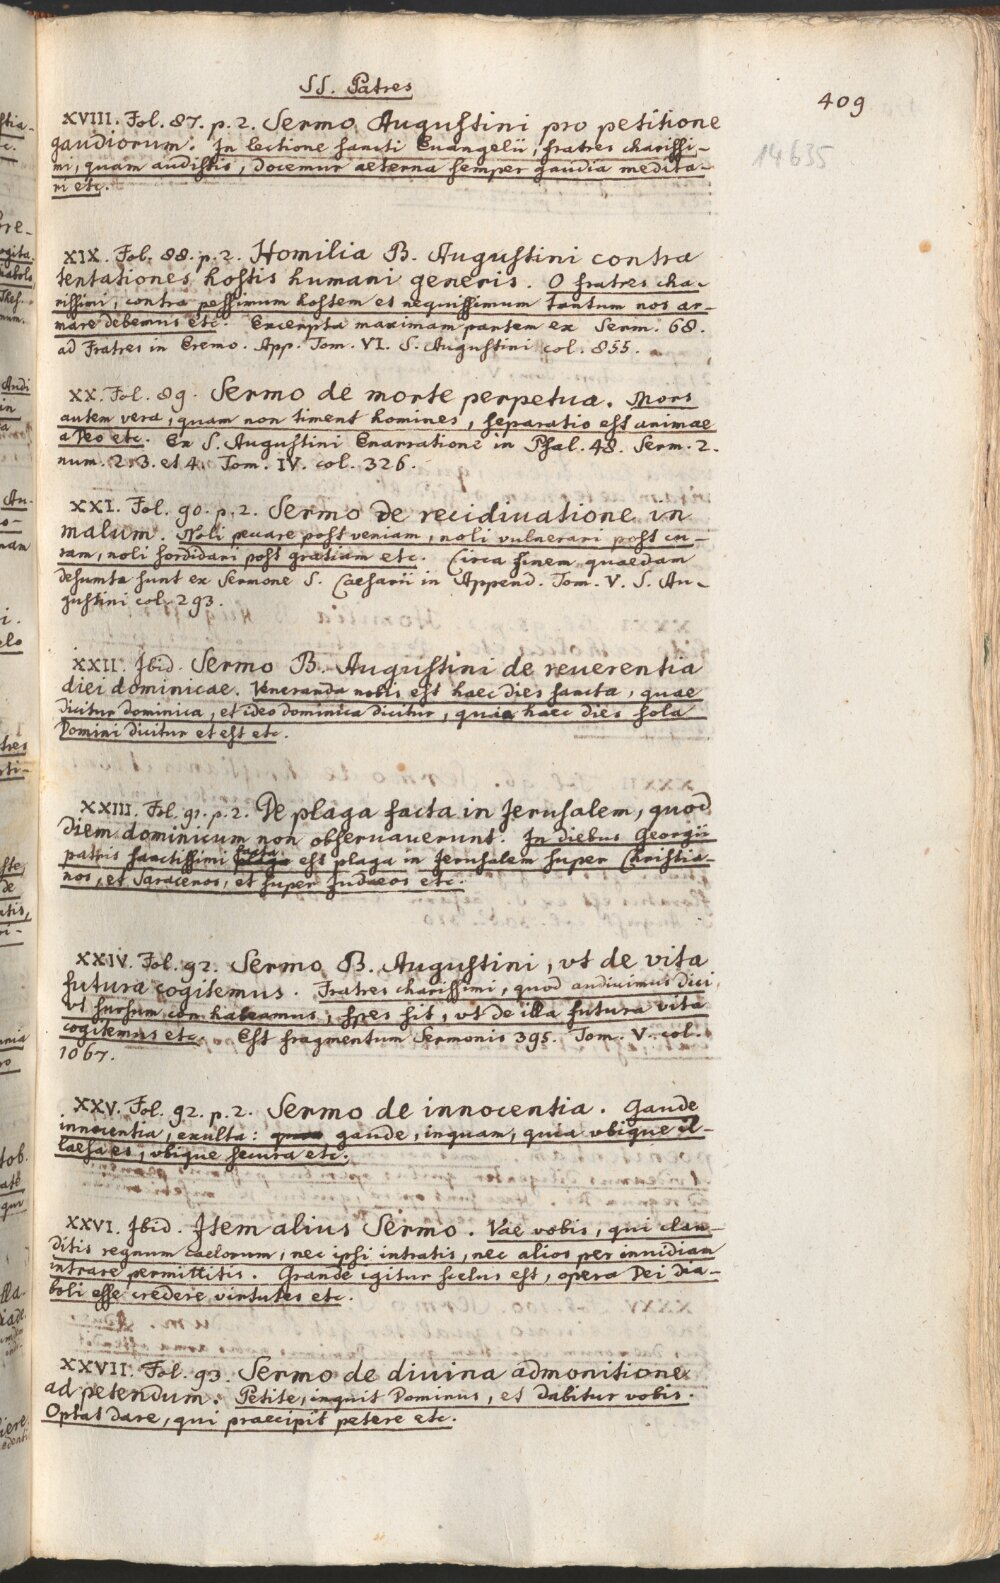 SS. Patres
409
14635
XVIII. Fol. 87. p. 2. Sermo Augustini pro petitione
gaudiorum. In lectione sancti Euangelii, fratres charissi-
mi, quam audistis, docemur aeterna semper gaudia medita-
ri etc.
XIX. Fol. 88. p. 2. Homilia B. Augustini contra
tentationes hostis humani generis. O fratres cha-
rissimi, contra pessimum hostem et nequissimum tantum nos ar-
mare debemus etc. Excerpta maximam partem ex Serm. 68.
ad Fratres in Eremo. App. Tom. VI. S. Augustini col. 855.
XX. Fol. 89. Sermo de morte perpetua. Mors
autem vera, quam non timent homines, separatio est animae
a Deo etc. Ex S. Augustini Enarratione in Psal. 48. Serm. 2.
num. 2. 3. et 4. Tom. IV. col. 326.
XXI. Fol. 90. p. 2. Sermo de recidiuatione in
malum. Noli peccare post veniam, noli vulnerari post cu-
ram, noli sordidari post gratiam etc. Circa finem quaedam
desumta sunt ex Sermone S. Caesarii in Append. Tom. V. S. Au-
gustini col. 293.
XXII. Ibid. Sermo B. Augustini de reuerentia
diei dominicae. Veneranda nobis est haec dies sancta, quae
dicitur dominica, et ideo dominica dicitur, quia haec dies sola
Domini dicitur et est etc.
XXIII. Fol. 91. p. 2. De plaga facta in Jerusalem, quod
diem dominicum non obseruauerunt. In diebus Georgii
patris sanctissimi facta est plaga in Jerusalem super Christia-
nos, et Saracenos, et super Judaeos etc.
XXIV. Fol. 92. Sermo B. Augustini, vt de vita
futura cogitemus. Fratres charissimi, quod audiuimus dici,
vt sursum cor habeamus, spes sit, vt de illa futura vita
cogitemus etc. Est fragmentum Sermonis 395. Tom. V. col.
1067.
XXV. Fol. 92. p. 2. Sermo de innocentia. Gaude
innocentia, exulta: gaude, inquam, quia vbique il-
laesa es, vbique secura etc.
XXVI. Ibid. Item alius Sermo. Vae vobis, qui clau-
ditis regnum caelorum, nec ipsi intratis, nec alios per inuidiam
intrare permittitis. Grande igitur scelus est, opera Dei dia-
boli esse credere virtutes etc.
XXVII. Fol. 93. Sermo de diuina admonitione
ad petendum. Petite, inquit Dominus, et dabitur vobis.
Optat dare, qui praecipit petere etc.